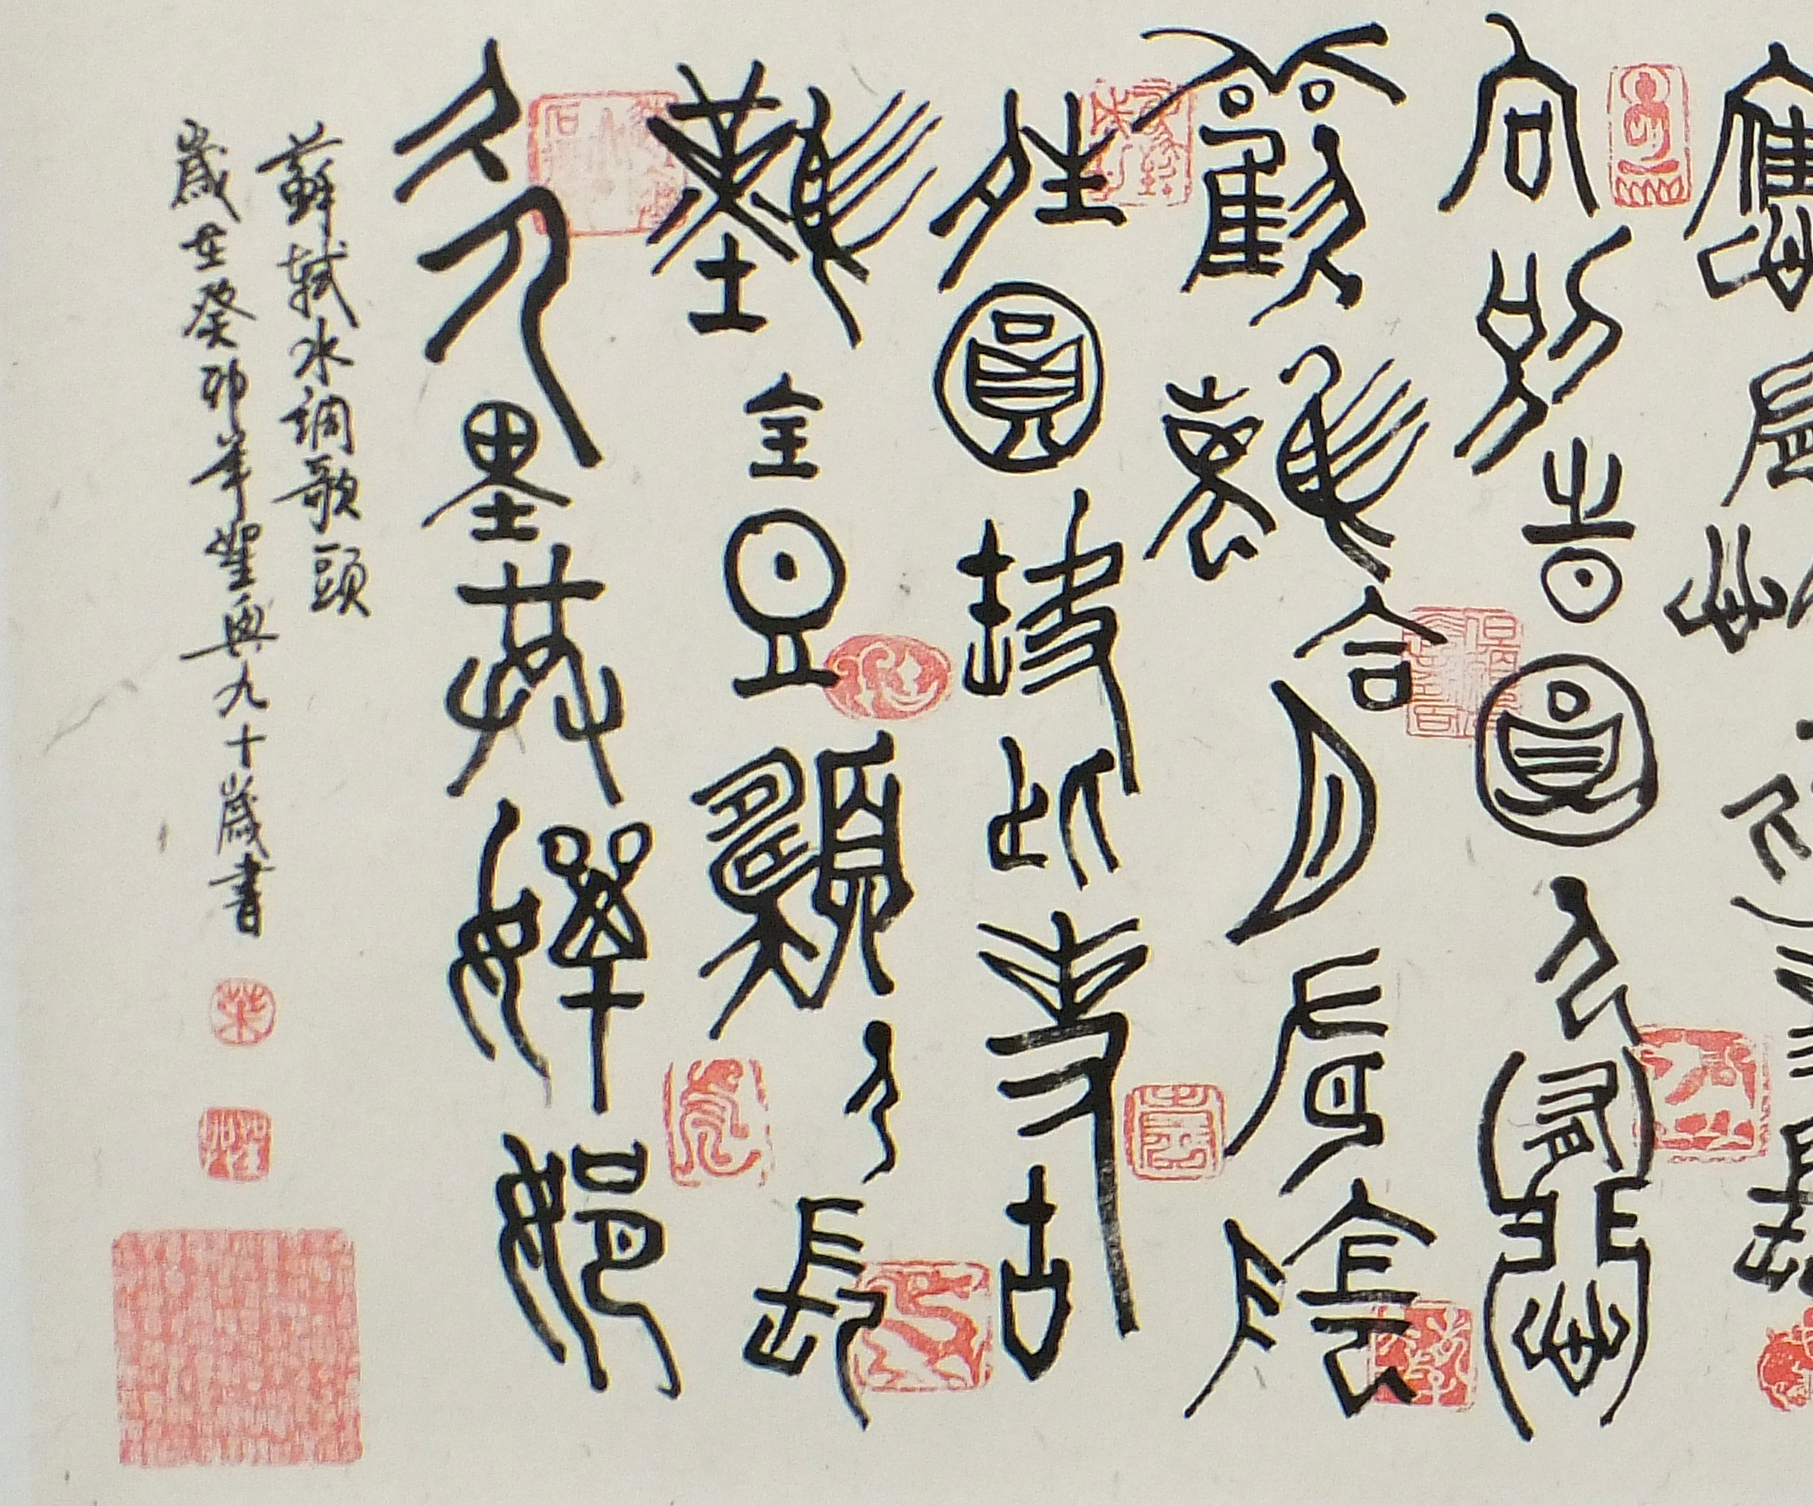 應有恨何事長
向別時圓人有悲
歡離合月有陰
晴圓缺此事古
難全但願人長
久千里共嬋娟
蘇軾水調歌頭
歲在癸卯年九十歲書